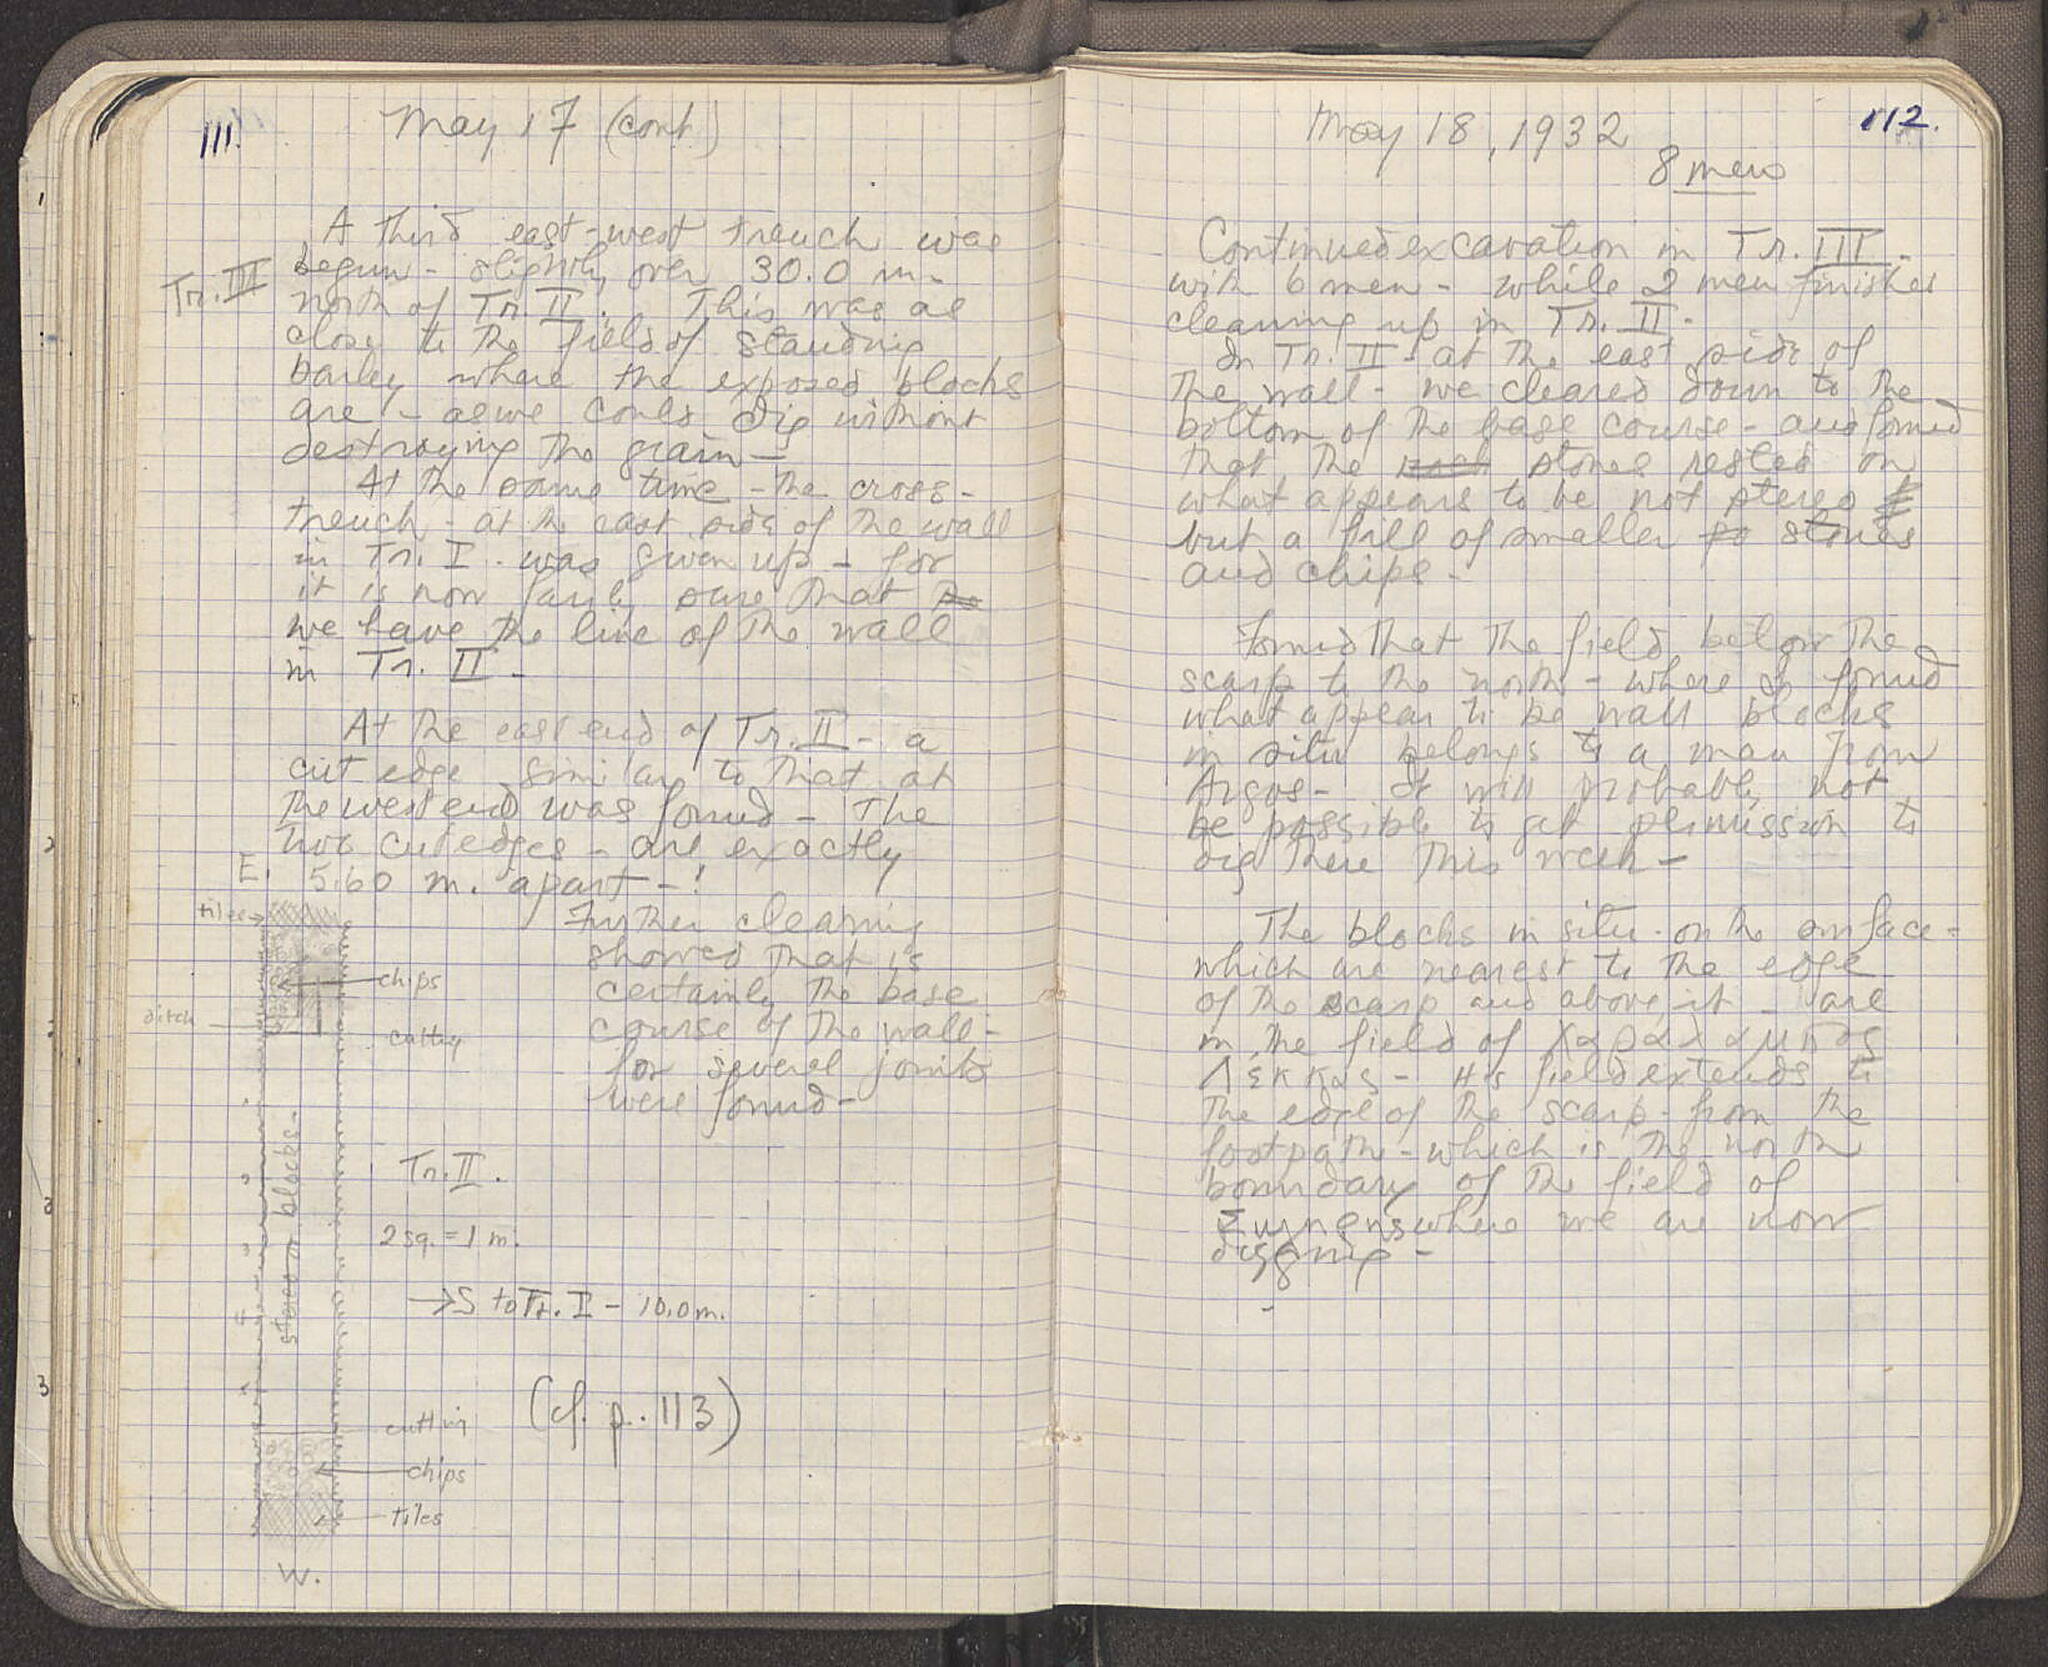 111.
May 17 (cont)
A third east-west trench was
Tr. III
begun - slightly over 30.0 m.
north of Tr. II. This was as
close to the field of standing
barley where the exposed blocks
are - as we could dig without
destroying the grain -
At the same time - the cross-
trench - at the east side of the wall
in Tr. I was given up - for
it is now fairly sure that
we have the line of the wall
in Tr. II -
At the east end of Tr. II - a
cut edge similar to that at
the west end was found - The
two cut edges - are exactly
5.60 m. apart - !
E.
tiles
chips
ditch
cutting
stereo blocks.
Further cleaning
showed that is
certainly the base
course of the wall -
for several joints
were found -
Tr. II.
2 sq. = 1 m.
→ S to Tr. I - 10.0 m.
(cf. p. 113)
cutting
chips
tiles
W.
112.
May 18, 1932
8 men
Continued excavation in Tr. III -
with 6 men - while 2 men finished
cleaning up in Tr. II -
In Tr. II - at the east side of
the wall - we cleared down to the
bottom of the base course - and found
that the stones rested on
what appears to be not stereo
but a fill of smaller stones
and chips -
Found that the field below the
scarp to the north - where I found
what appear to be wall blocks
in situ belongs to a man from
Argos - It will probably not
be possible to get permission to
dig there this week -
The blocks in situ - on the surface -
which are nearest to the edge
of the scarp and above it - are
in the field of Χαραλαμπος
Λεκκας - His field extends to
the edge of the scarp - from the
footpath - which is the north
boundary of the field of
where we are now
digging -